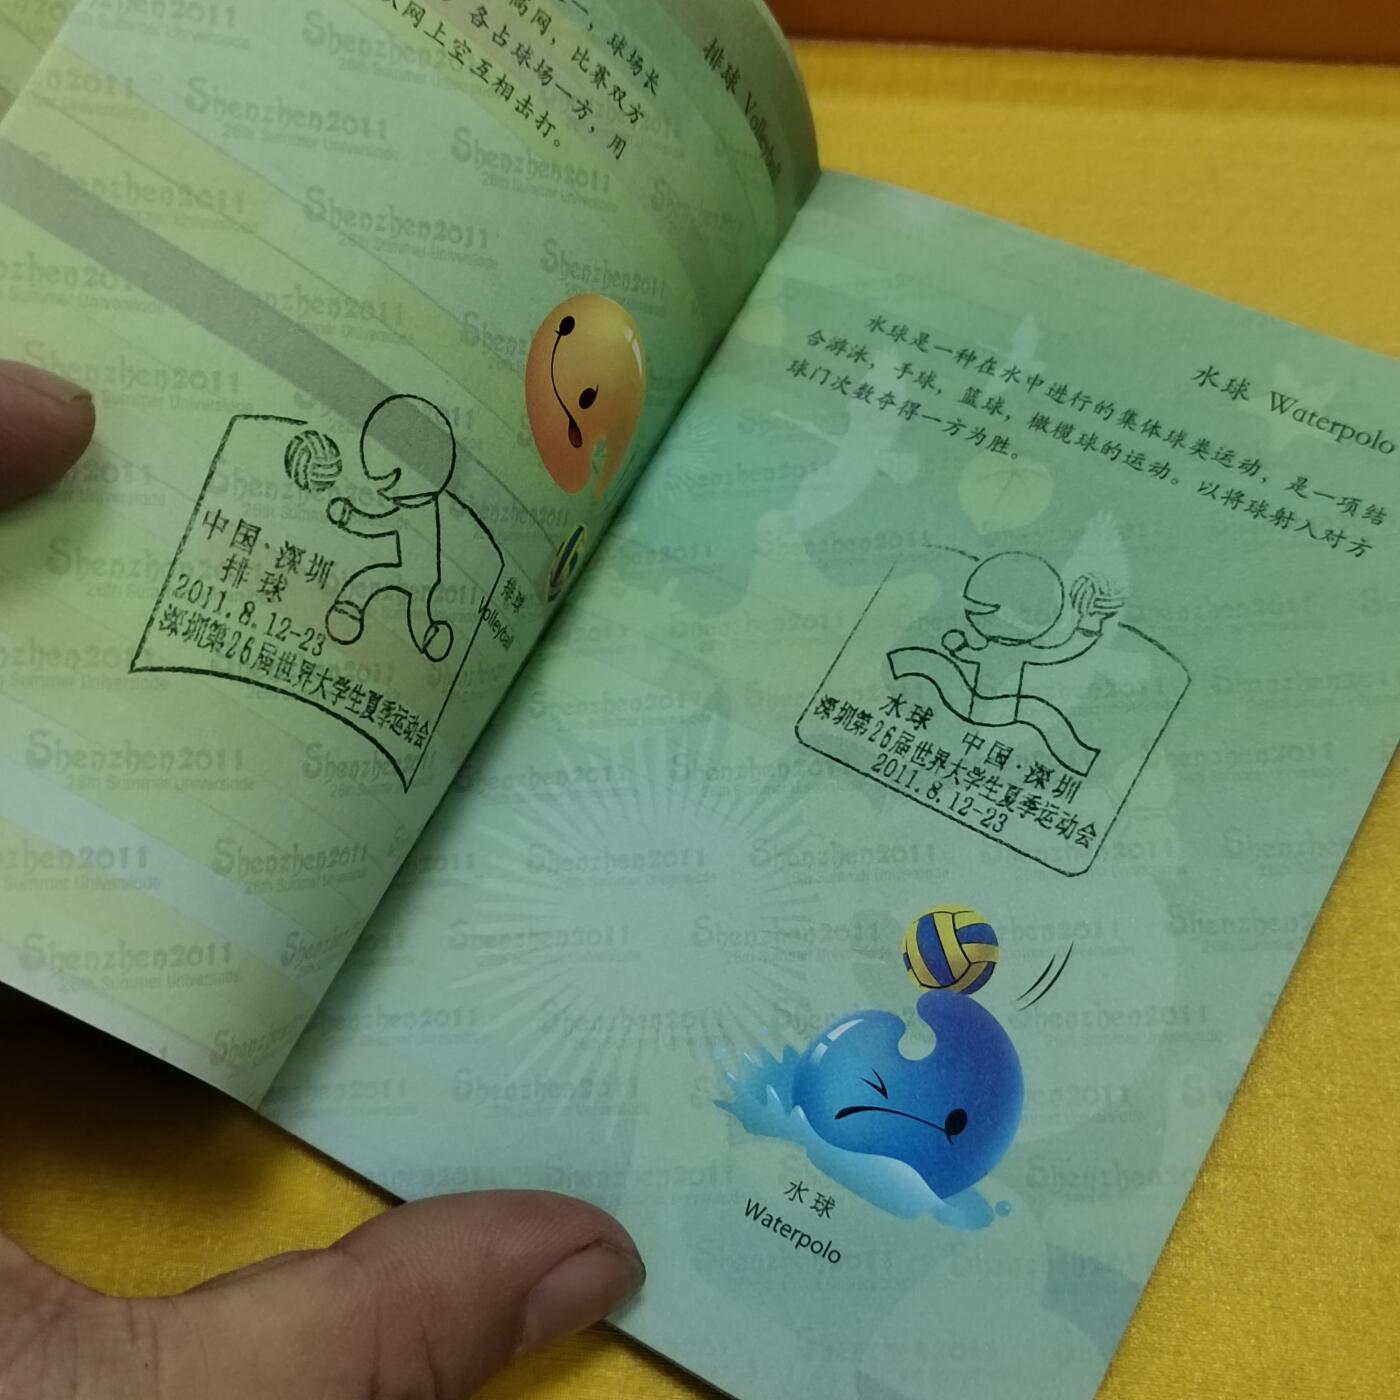 排球 Volleyball
球场长
高网，比赛双方
各占球场一方，用
网上空互相击打。
中国·深圳
排球
2011.8.12-23
深圳第26届世界大学生夏季运动会
排球
Volleyball
水球 Waterpolo
水球是一种在水中进行的集体球类运动，是一项结
合游泳，手球，篮球，橄榄球的运动。以将球射入对方
球门次数夺得一方为胜。
水球 中国·深圳
深圳第26届世界大学生夏季运动会
2011.8.12-23
水球
Waterpolo
Shenzhen2011
26th Summer Universiade